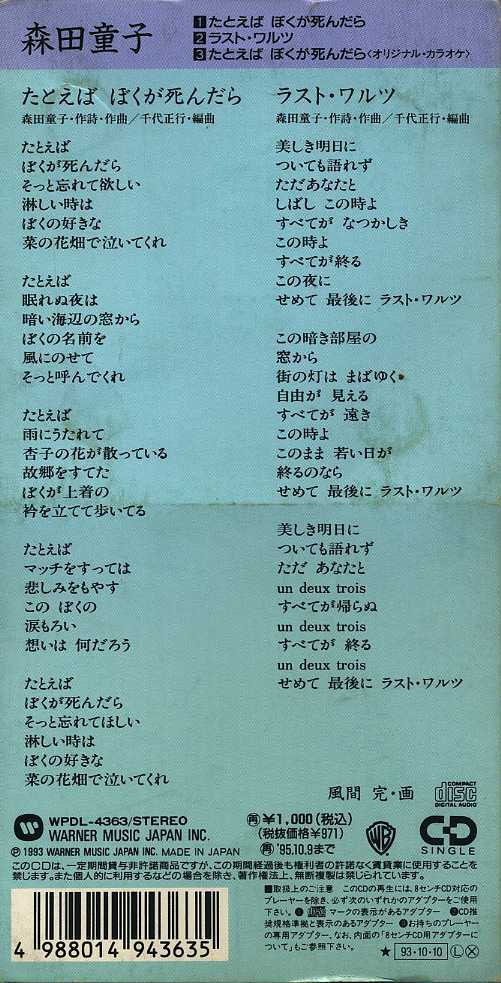 森田童子
1 たとえば ぼくが死んだら
2 ラスト・ワルツ
3 たとえば ぼくが死んだら〈オリジナル・カラオケ〉
たとえば ぼくが死んだら
森田童子・作詩・作曲／千代正行・編曲
たとえば
ぼくが死んだら
そっと忘れて欲しい
淋しい時は
ぼくの好きな
菜の花畑で泣いてくれ
たとえば
眠れぬ夜は
暗い海辺の窓から
ぼくの名前を
風にのせて
そっと呼んでくれ
たとえば
雨にうたれて
杏子の花が散っている
故郷をすてた
ぼくが上着の
衿を立てて歩いてる
たとえば
マッチをすっては
悲しみをもやす
この ぼくの
涙もろい
想いは 何だろう
たとえば
ぼくが死んだら
そっと忘れてほしい
淋しい時は
ぼくの好きな
菜の花畑で泣いてくれ
ラスト・ワルツ
森田童子・作詩・作曲／千代正行・編曲
美しき明日に
ついても語れず
ただあなたと
しばし この時よ
すべてが なつかしき
この時よ
すべてが終る
この夜に
せめて 最後に ラスト・ワルツ
この暗き部屋の
窓から
街の灯は まばゆく
自由が 見える
すべてが 遠き
この時よ
このまま 若い日が
終るのなら
せめて 最後に ラスト・ワルツ
美しき明日に
ついても語れず
ただ あなたと
un deux trois
すべてが帰らぬ
un deux trois
すべてが 終る
un deux trois
せめて 最後に ラスト・ワルツ
風間 完・画
COMPACT
disc
DIGITAL AUDIO
WPDL-4363/STEREO
WARNER MUSIC JAPAN INC.
Ⓟ1993 WARNER MUSIC JAPAN INC. MADE IN JAPAN
再￥1,000(税込)
(税抜価格￥971)
再'95.10.9まで
WB
CD
SINGLE
このCDは、一定期間貸与非許諾商品ですが、この期間経過後も権利者の許諾なく賃貸業に使用することを
禁じます。また個人的に利用するなどの場合を除き、著作権法上、無断複製は禁じられています。
4 988014 943635
■取扱上のご注意 このCDの再生には、8センチCD対応の
プレーヤーを除き、必ず次のいずれかのアダプターをご使用
下さい。❶ disc マークの表示があるアダプター ❷CD推
奨規格準拠と表示のあるアダプター ❸お持ちのプレーヤー
の専用アダプター。なお、内面の「8センチCD用アダプターに
ついて」もご参照下さい。
★ 93・10・10 Ⓛ Ⓧ